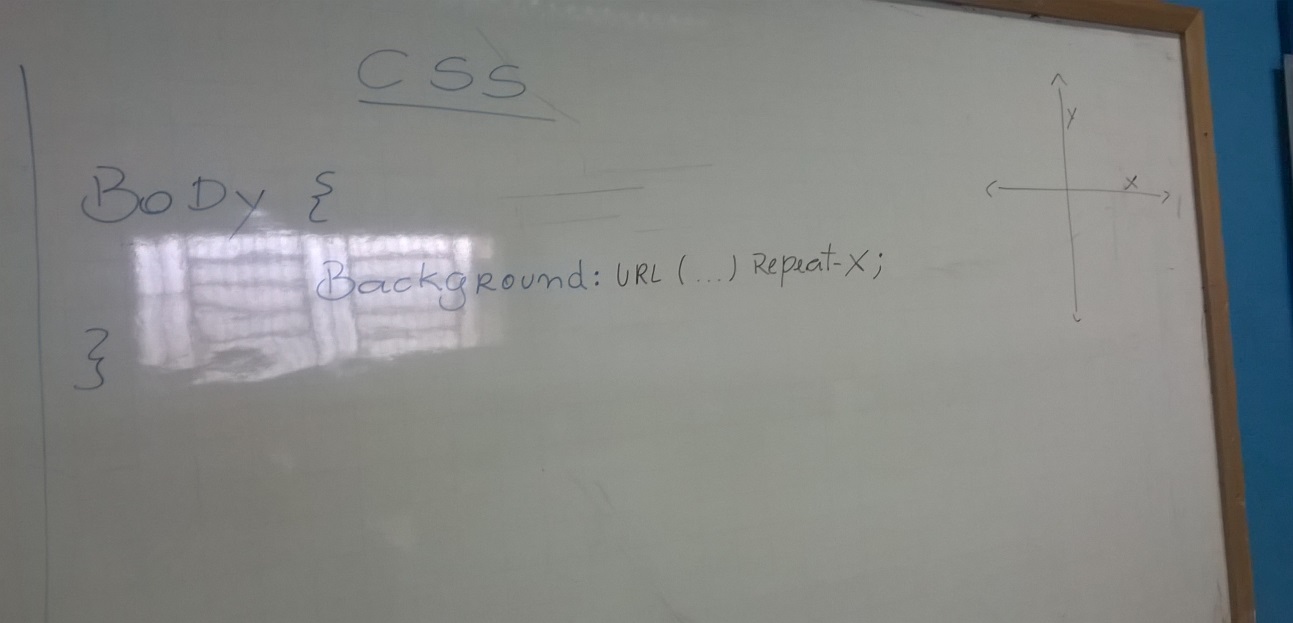 CSS
BODY {
Background: URL (...) Repeat-X;
}
y
x